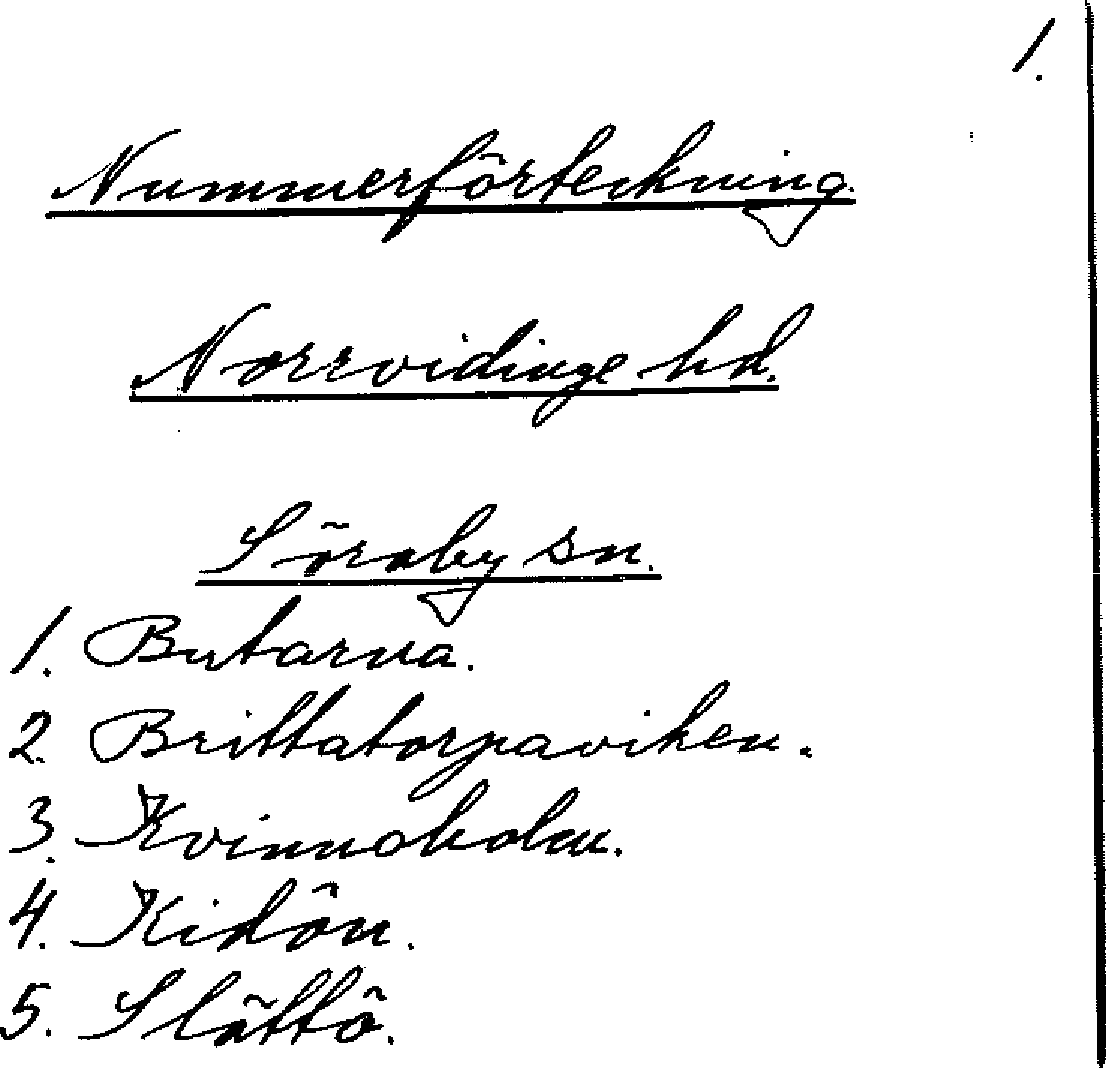 1.
Nummerförteckning.
Norrvidinge hd.
Söraby sn.
1. Butarna.
2. Brittatorpaviken.
3. Kvinnoholm.
4. Kidön.
5. Slättö.